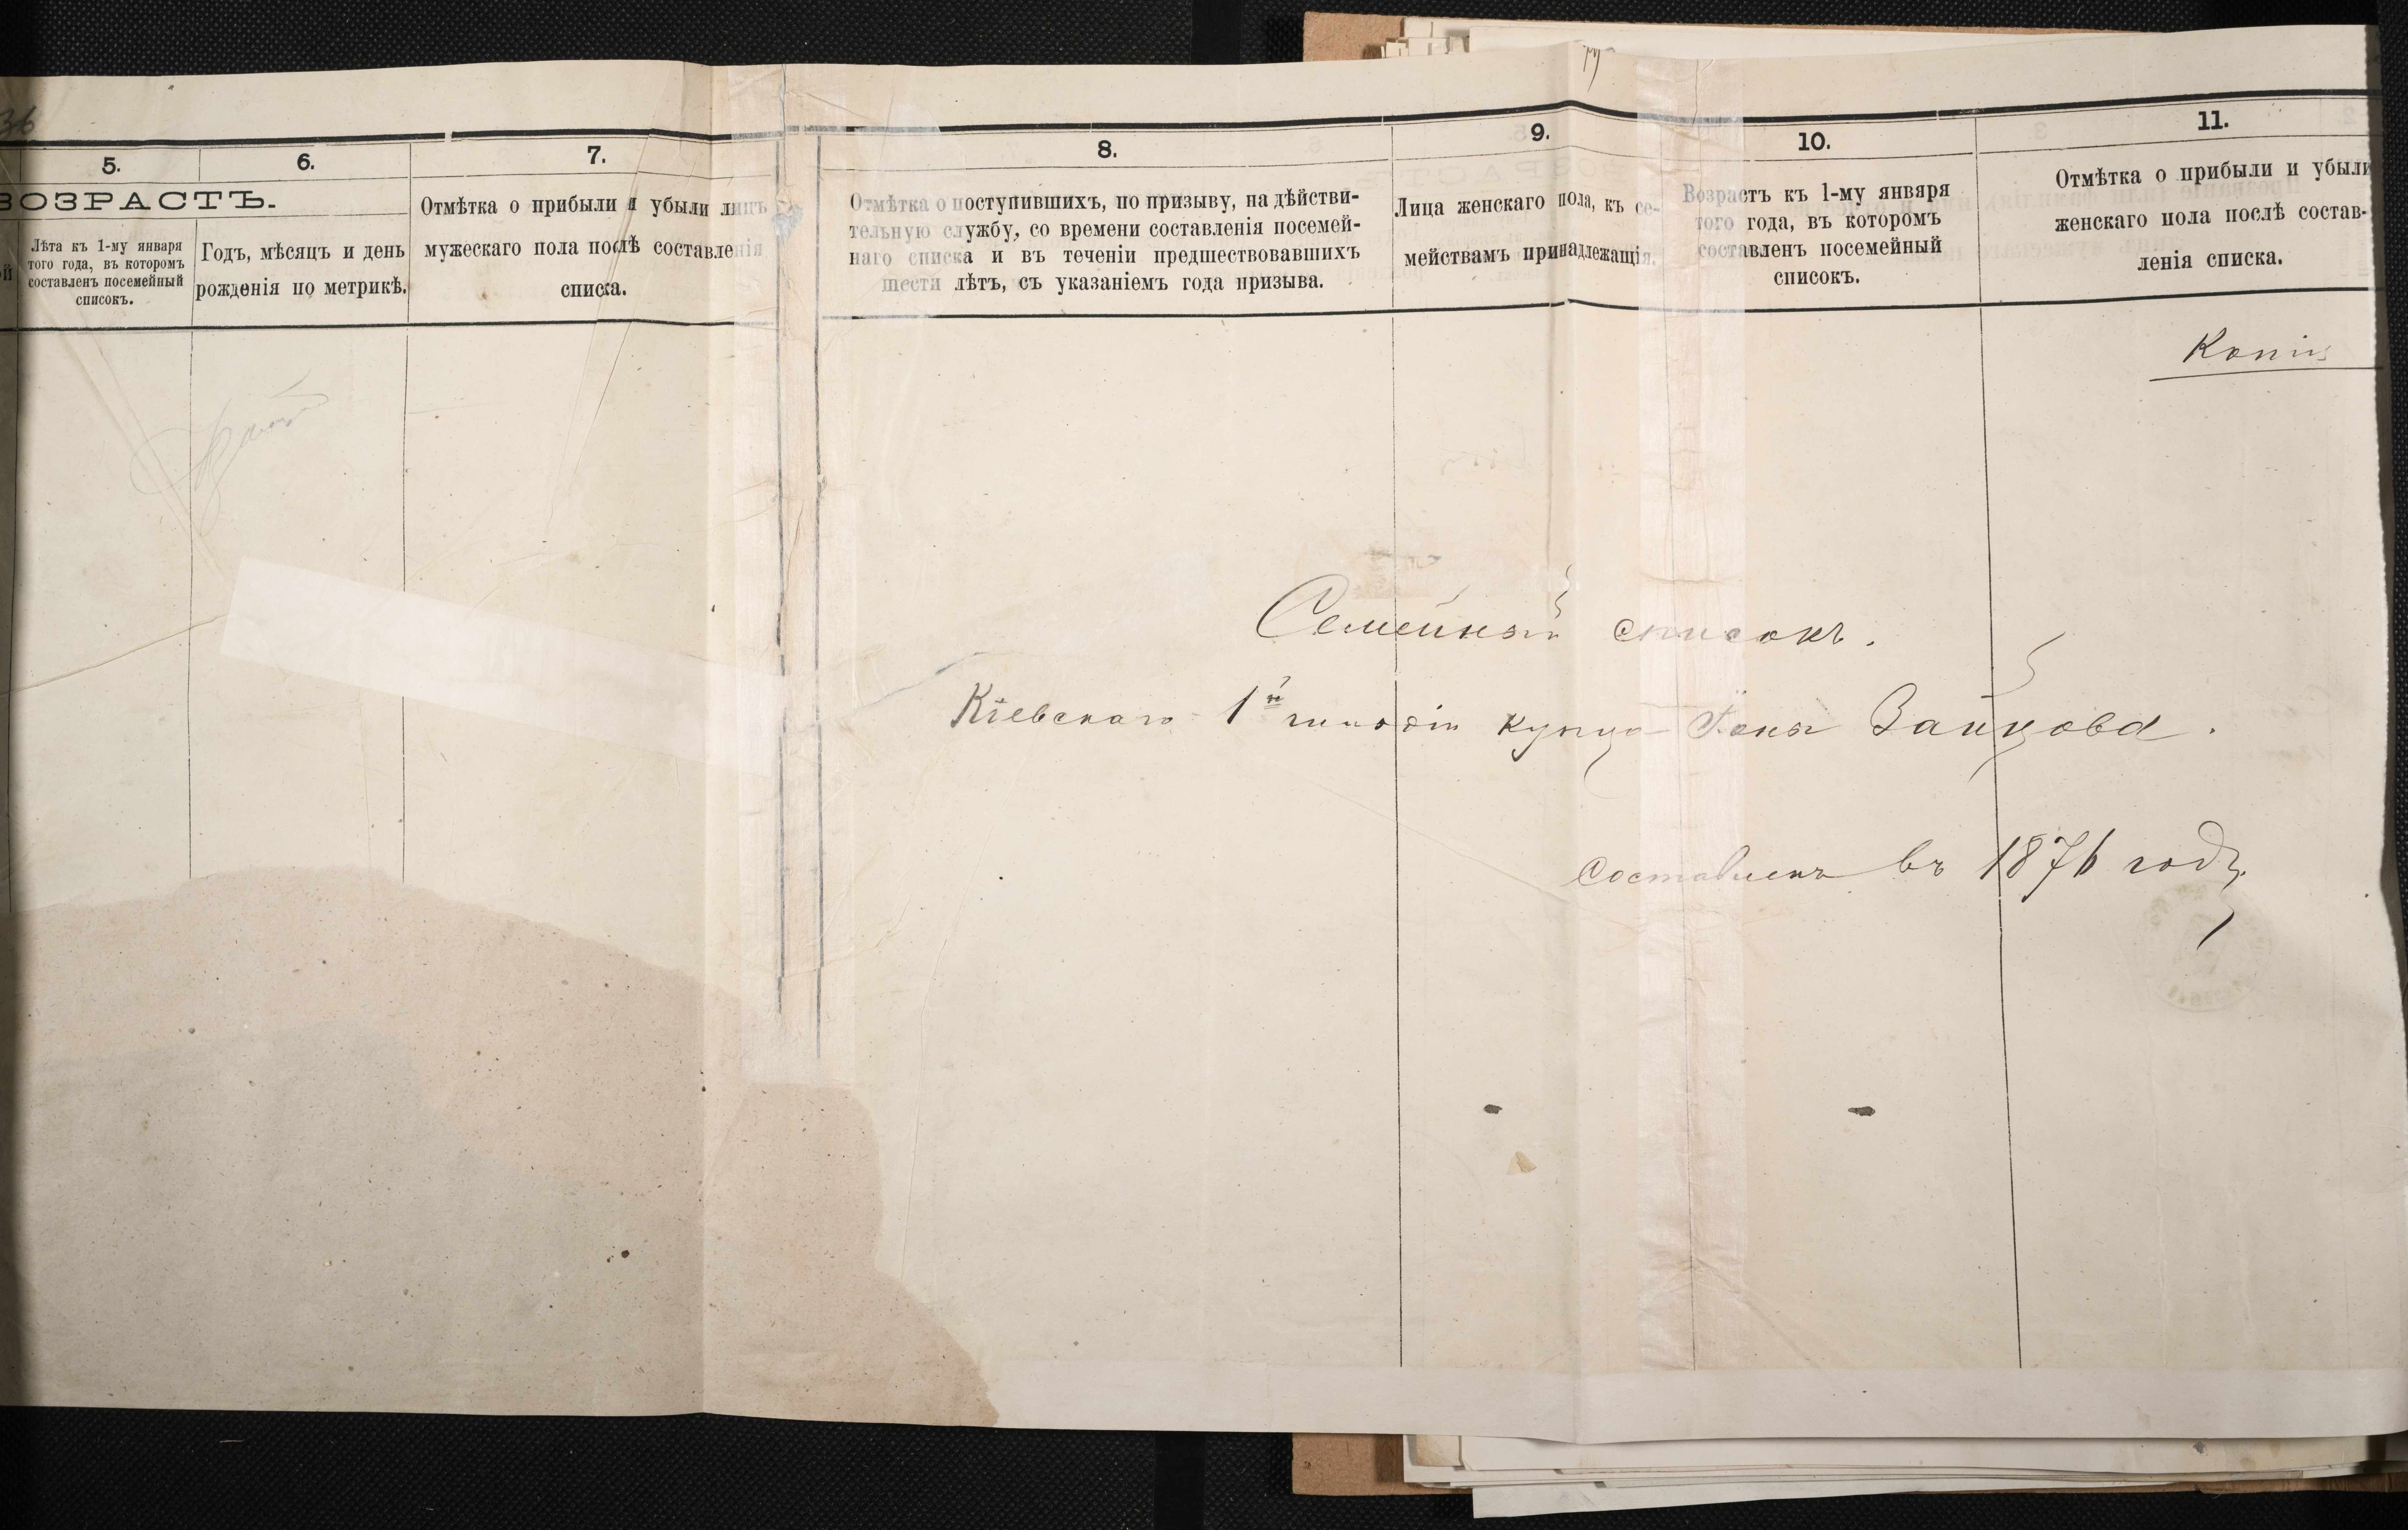 36
5.
6.
7.
8.
9.
10.
11.
ВОЗРАСТЪ.
Лѣта къ 1-му января
того года, въ которомъ
составленъ посемейный
списокъ.
Годъ, мѣсяцъ и день
рожденія по метрикѣ.
Отмѣтка о прибыли и убыли лицъ
мужескаго пола послѣ составленія
списка.
Отмѣтка о поступившихъ, по призыву, на дѣйстви-
тельную службу, со времени составленія посемей-
наго списка и въ теченіи предшествовавшихъ
шести лѣтъ, съ указаніемъ года призыва.
Лица женскаго пола, къ се-
мействамъ принадлежащія.
Возрастъ къ 1-му января
того года, въ которомъ
составленъ посемейный
списокъ.
Отмѣтка о прибыли и убыли
женскаго пола послѣ состав-
ленія списка.
Копія
Семейный списокъ.
Кіевскаго 1й гильдіи купца Іоны Зайцова.
Составленъ въ 1876 году.